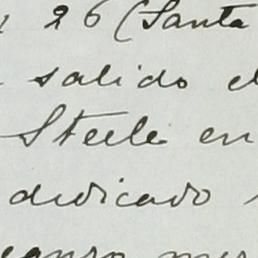 26 (Santa
salido el
Steele en
dedicado